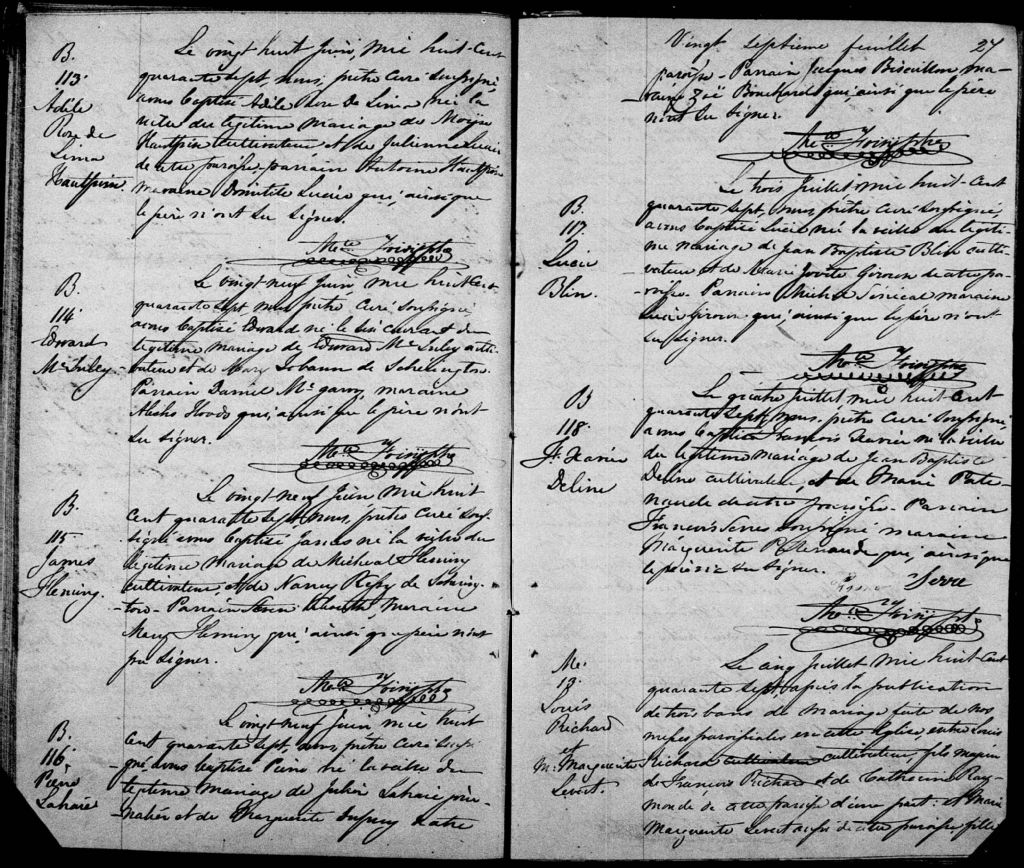 B.
113.
Adile
Rose de
Lima
Hautpuin
Le vingt huit Juin, mil huit-Cent
quarante sept, nous, prêtre Curé soussigné
avons baptisé Adile Rose De Lima née la
veille du légitime mariage de Moÿse
cultivateur et de Julienne
de cette paroisse, parrain Antoine
maraine Domitile qui, ainsi que
le père n'ont su signer.
B.
114.
Edward
Le vingt neuf Juin, mil huit Cent
quarante sept, nous prêtre Curé soussigné,
avons baptisé Edward né le six courant du
légitime mariage de Edward culti-
vateur et de Mary de Scherington.
Parrain Daniel Mc garry, maraine
qui, ainsi que le père n'ont
su signer.
B.
115.
James
Fleming.
Le vingt neuf Juin mil huit
Cent quarante sept, nous, prêtre Curé sous-
signé avons baptisé James né la veille du
légitime mariage de Micheal Fleming
cultivateur, et de Nancy de Scherring-
ton. Parrain maraine
Mary Fleming qui, ainsi que père n'ont
pu signer.
B.
116.
Pierre
Laharé
Le vingt neuf Juin mil huit
Cent quarante sept, nous prêtre Curé sous-
gné avons baptisé Pierre né la veille du
légitime mariage de Julien Laharé jour-
nalier et de Marguerite Dupuy de cette
Vingt septième feuillet 27
paroisse - Parrain Jacques ma-
raine Zoë Bouchard qui, ainsi que le père
n'ont su signer.
B.
117.
Lucie
Blin.
Le trois Juillet mil huit-Cent
quarante sept, nous, prêtre Curé soussigné,
avons baptisé Lucie née la veille du légiti-
me mariage de Jean Baptiste Blin culti-
vateur et de Marie Jovite Giroux de cette pa-
roisse. Parrain Michel Sénécal maraine
Lucie Giroux qui, ainsi que le père n'ont
su signer.
B
118.
Fs Xavier
Deline
Le quatre Juillet mil huit-Cent
quarante sept, nous, prêtre Curé soussigné,
avons baptisé François Xavier né la veille
du légitime mariage de Jean Baptiste
Deline cultivateur et de Marie Pate-
naude de cette paroisse. Parrain
François Serre soussigné maraine
Marguerite Patenaude qui, ainsi que
le père n'a su signer.
Serre
M.
19.
Louis
Richard
et
M. Marguerite
Levert.
Le cinq Juillet mil huit Cent
quarante sept, après la publication
de trois bans de mariage faite de nos
messes paroissiales en cette église, entre Louis
Richard cultivateur fils majeur
de François Richard et de Catherine Ray-
monde de cette paroisse d'une part: et Marie
Marguerite Levert aussi de cette paroisse fille